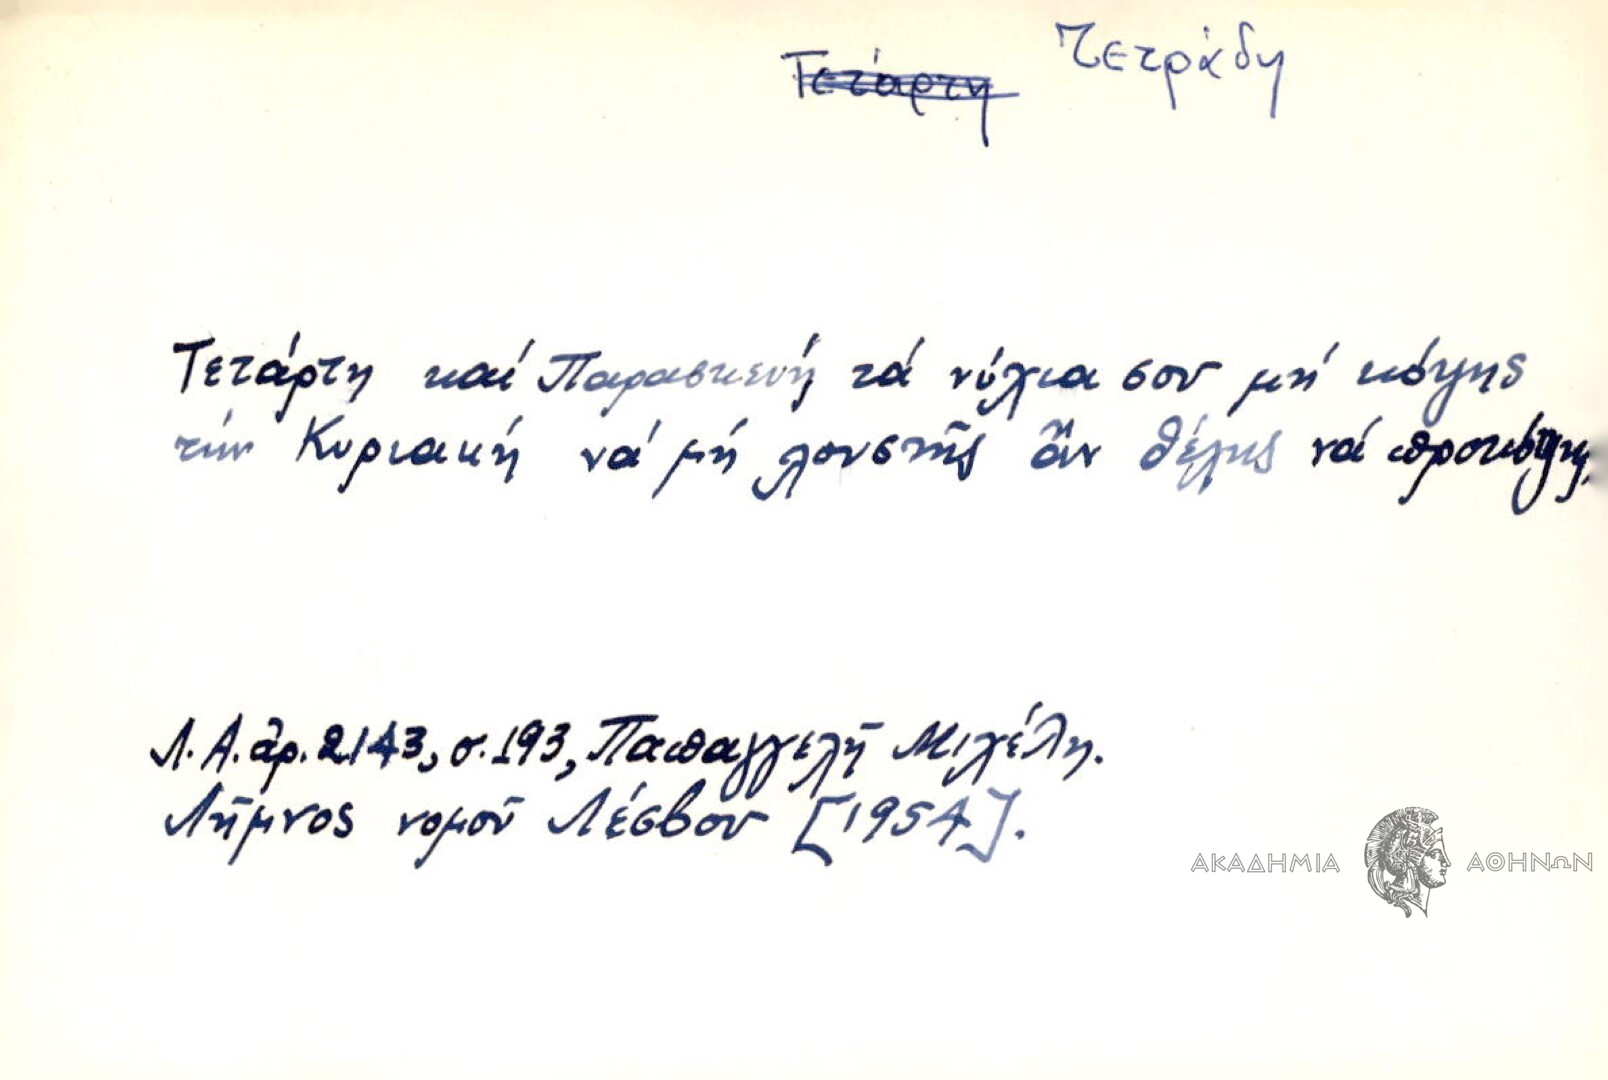 Τετάρτη Τετράδη
Τετάρτη καί Παρασκευή τά νύχια σου μή κόψης
τήν Κυριακή νά μή λουστῆς ἄν θέλης νά προκόψης
Λ.Α. ἀρ. 2143, σ. 193, Παπαγγελῆ Μιχέλη.
Λῆμνος νομοῦ Λέσβου [1954].
ΑΚΑΔΗΜΙΑ ΑΘΗΝΩΝ